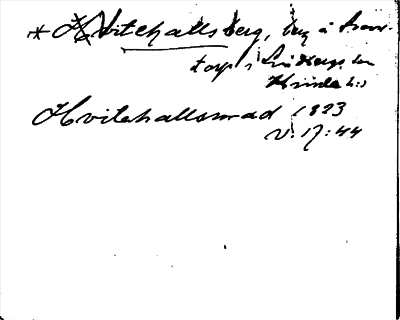 * Hvitehallsberg, berg å Trä-
torp i Lindbergs sn
Himle hd
Hvitehallsmad 1823
V: 17: 44